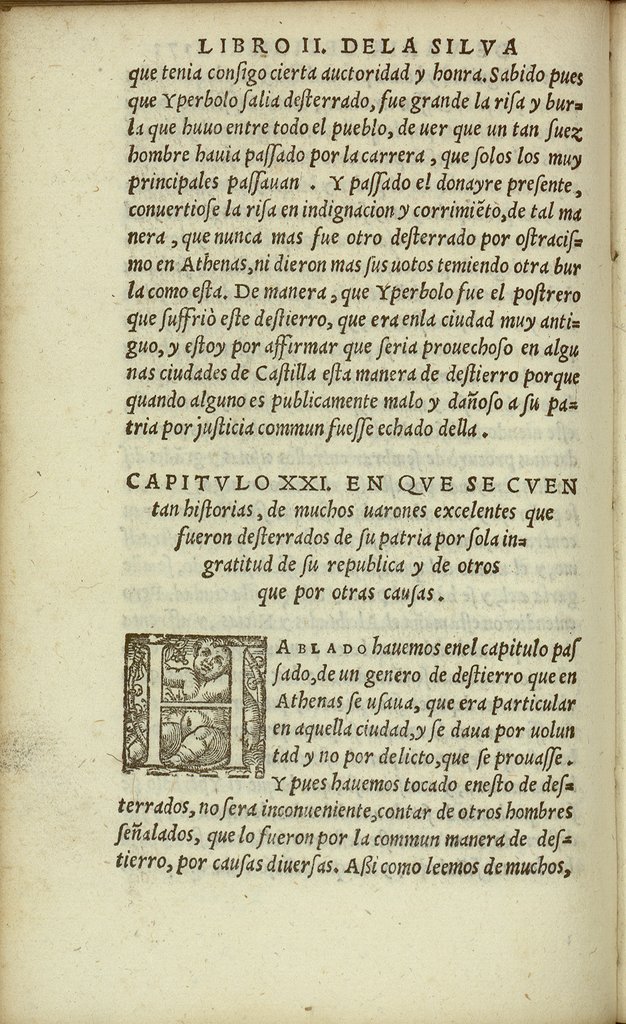 LIBRO II. DE LA SILVA
que tenia conſigo cierta auctoridad y honra. Sabido pues
que Yperbolo ſalia deſterrado, fue grande la riſa y bur=
la que huuo entre todo el pueblo, de uer que un tan ſuez
hombre hauia paſſado por la carrera, que ſolos los muy
principales paſſauan. Y paſſado el donayre preſente,
conuertioſe la riſa en indignacion y corrimiẽto, de tal ma
nera, que nunca mas fue otro deſterrado por oſtraciſ=
mo en Athenas, ni dieron mas ſus uotos temiendo otra bur
la como eſta. De manera, que Yperbolo fue el poſtrero
que ſuffriò eſte deſtierro, que era enla ciudad muy anti=
guo, y eſtoy por affirmar que ſeria prouechoſo en algu
nas ciudades de Caſtilla eſta manera de deſtierro porque
quando alguno es publicamente malo y dañoſo a ſu pa=
tria por juſticia commun fueſſe echado della.
CAPITVLO XXI. EN QVE SE CVEN
tan hiſtorias, de muchos uarones excelentes que
fueron deſterrados de ſu patria por ſola in=
gratitud de ſu republica y de otros
que por otras cauſas.
HABLADO hauemos enel capitulo paſ
ſado, de un genero de deſtierro que en
Athenas ſe uſaua, que era particular
en aquella ciudad, y ſe daua por uolun
tad y no por delicto, que ſe prouaſſe.
Y pues hauemos tocado eneſto de deſ=
terrados, no ſera inconueniente, contar de otros hombres
ſeñalados, que lo fueron por la commun manera de deſ=
tierro, por cauſas diuerſas. Aßi como leemos de muchos,